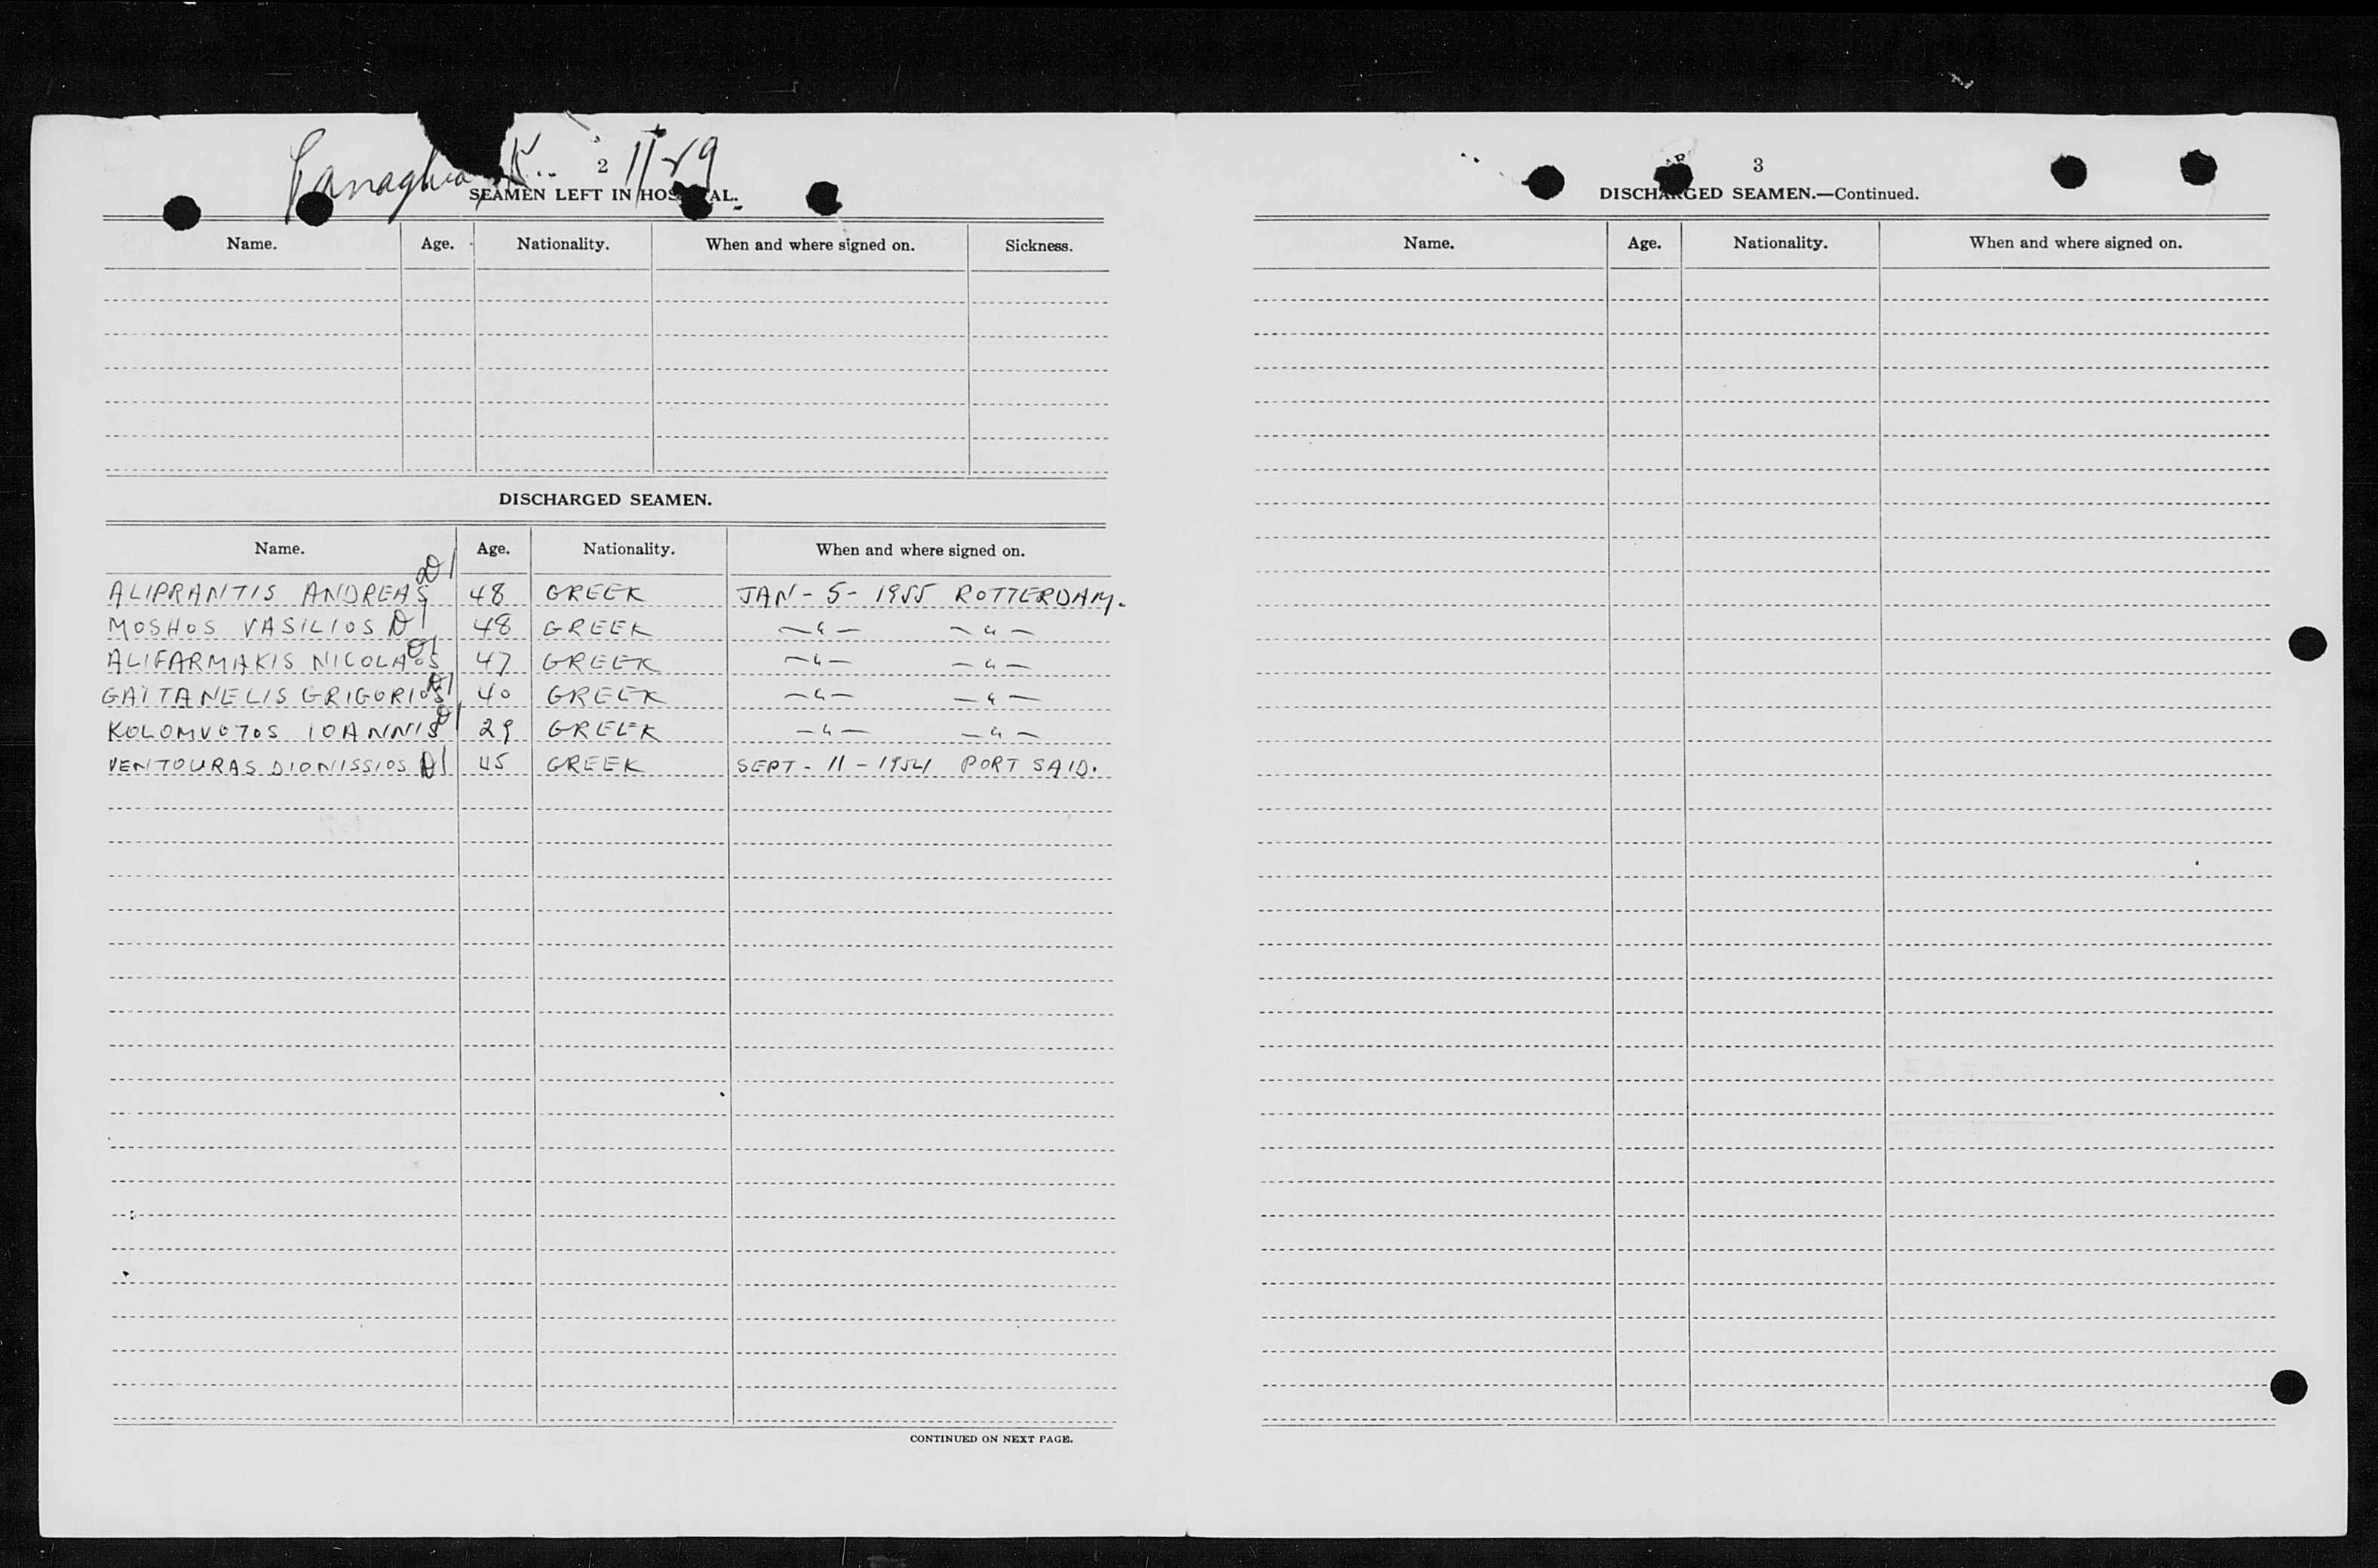 Panaghia K.. 2 11-29
SEAMEN LEFT IN HOS AL.
Name. Age. Nationality. When and where signed on. Sickness.
DISCHARGED SEAMEN.
Name. Age. Nationality. When and where signed on.
ALIPRANTIS ANDREAS 48 GREEK JAN - 5 - 1955 ROTTERDAM.
MOSHOS VASILIOS D 48 GREEK — " — — " —
ALIFARMAKIS NICOLAOS 47 GREEK — " — — " —
GAÏTANELIS GRIGORIOS 40 GREEK — " — — " —
KOLOMVOTOS IOANNIS 29 GREEK — " — — " —
VENTOURAS DIONISSIOS D 45 GREEK SEPT - 11 - 1954 PORT SAID.
CONTINUED ON NEXT PAGE.
3
DISCHARGED SEAMEN.—Continued.
Name. Age. Nationality. When and where signed on.